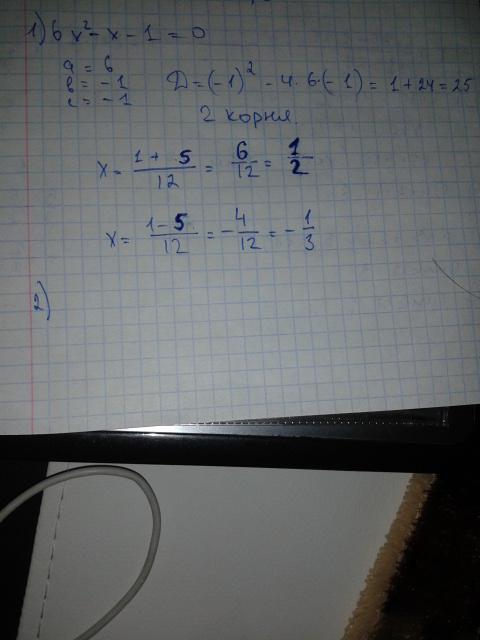 1) 6x² - x - 1 = 0
a = 6
b = -1
c = -1
D = (-1)² - 4·6·(-1) = 1 + 24 = 25
2 корня.
x = (1 + 5)/12 = 6/12 = 1/2
x = (1 - 5)/12 = -4/12 = -1/3
2)